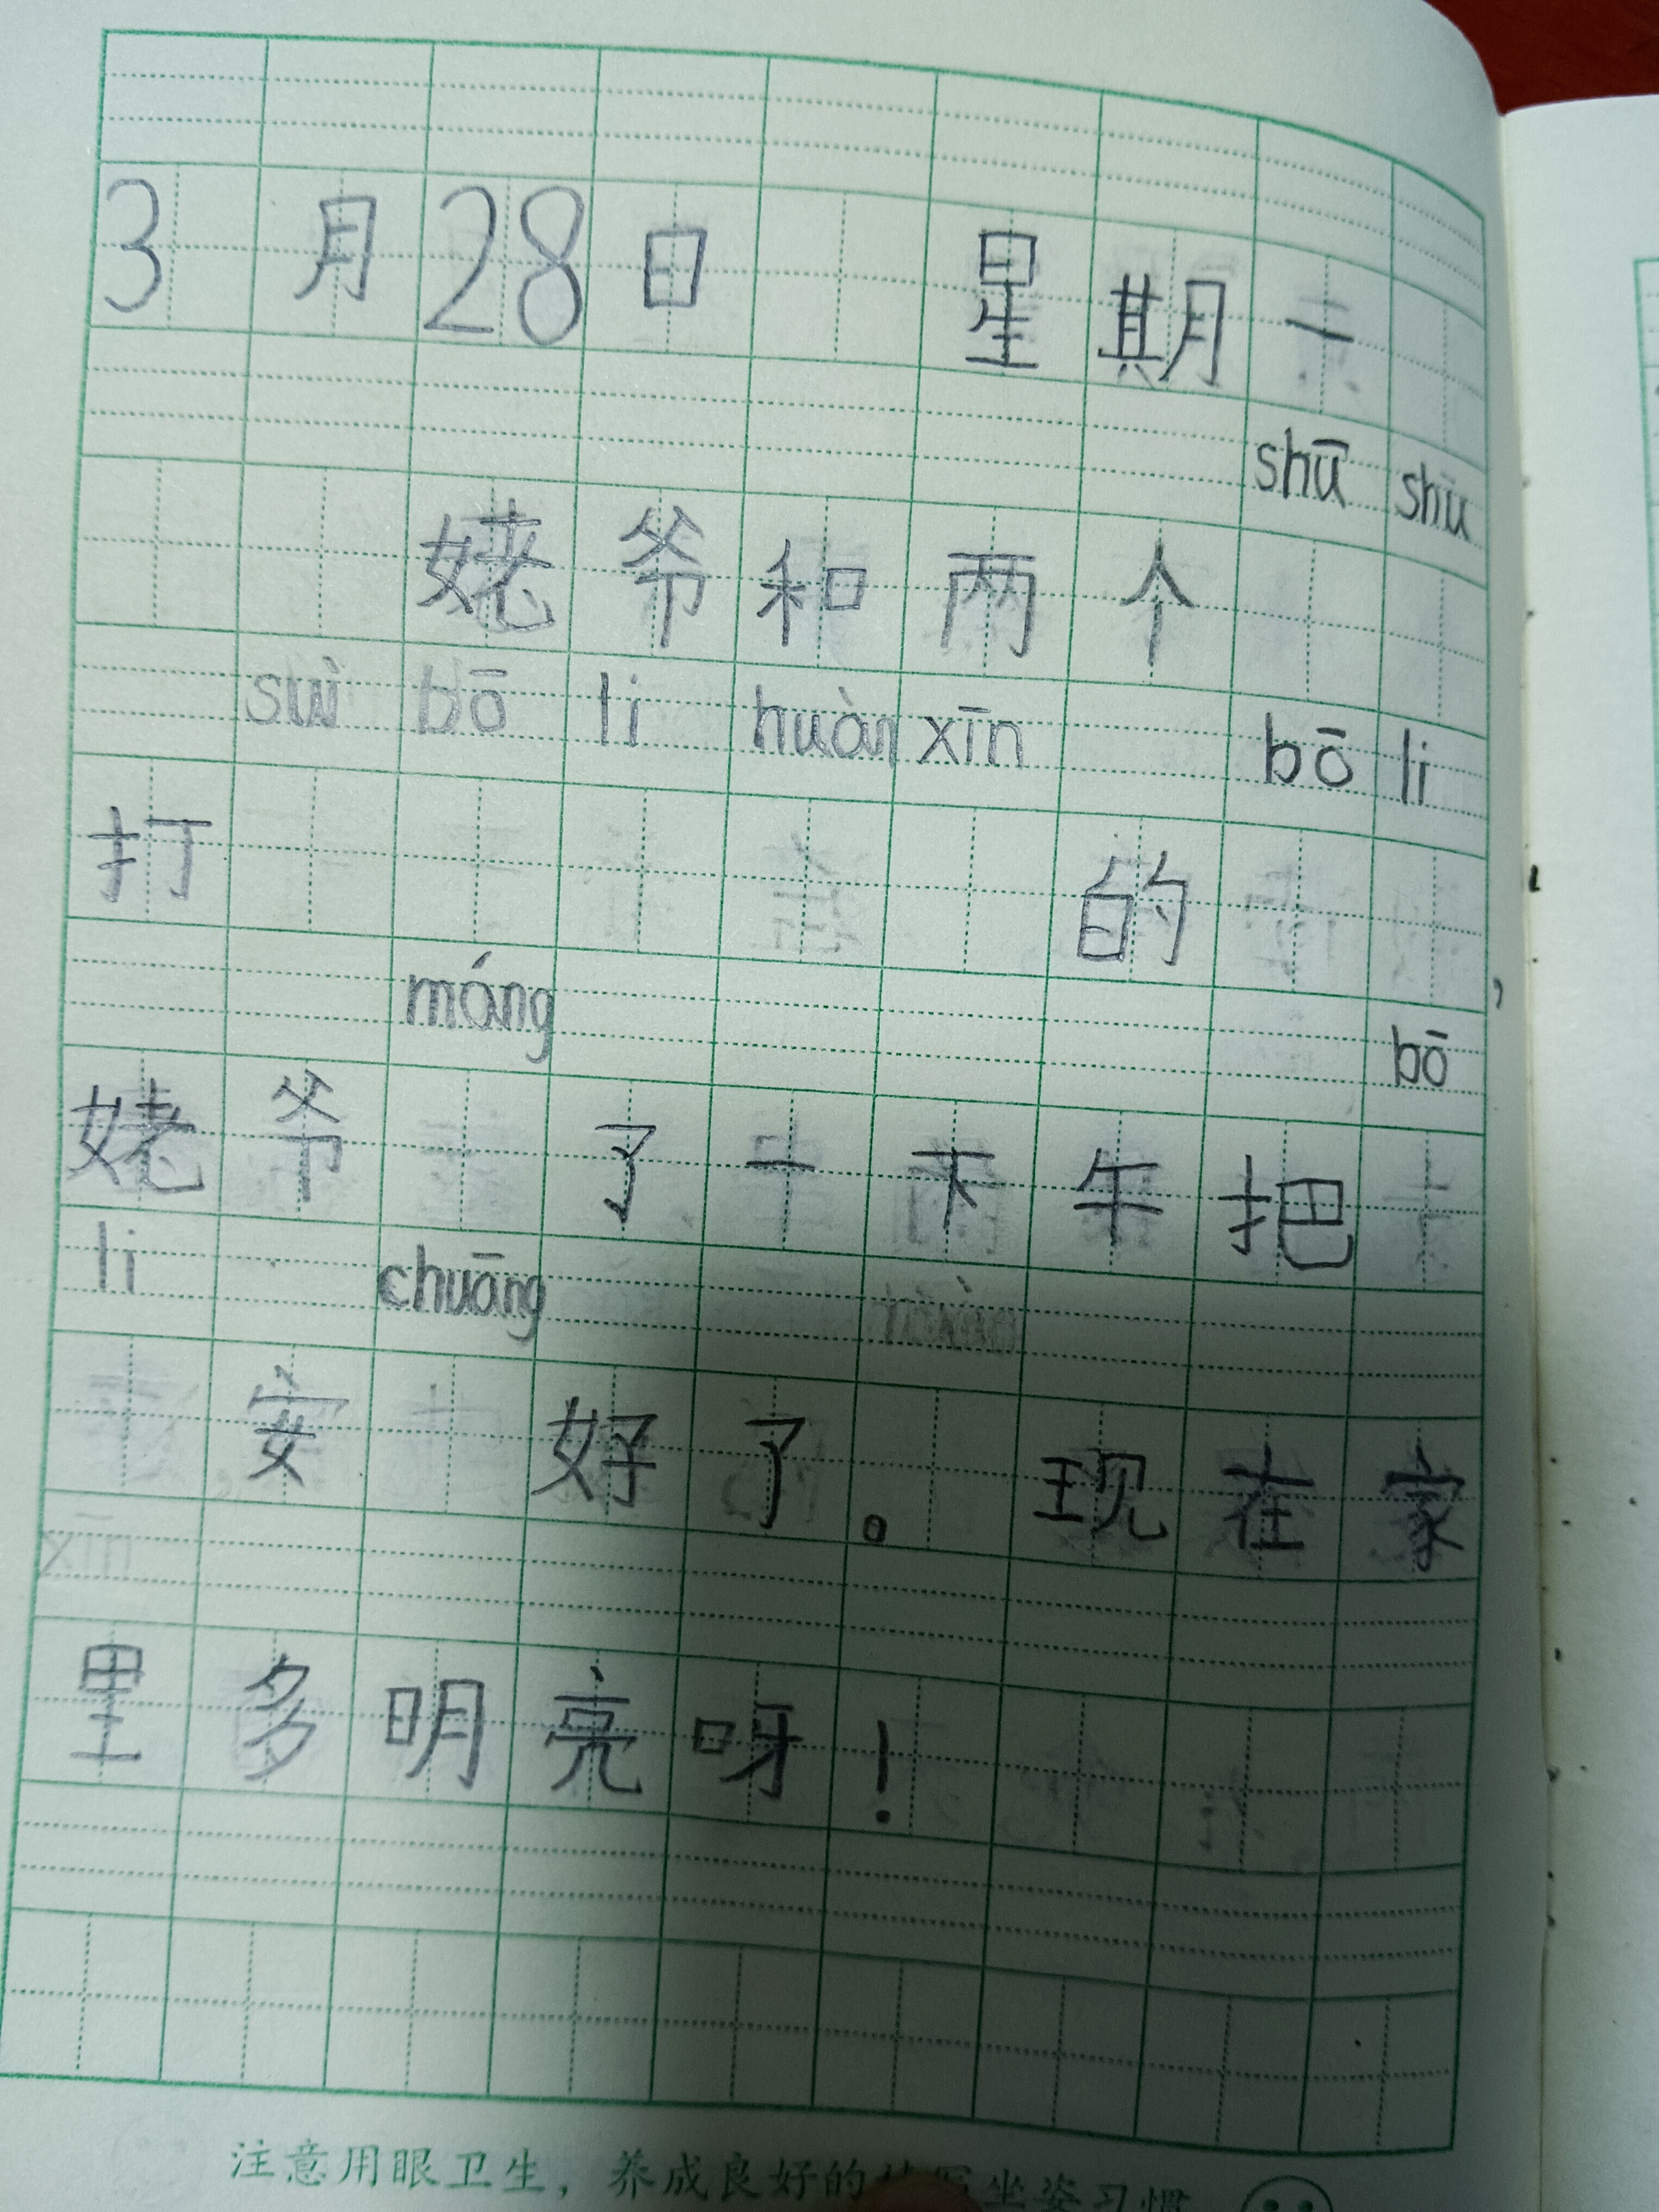 3月28日 星期一
shū shu
姥爷和两个
suì bō li huàn xīn bō li
打 的
,
máng bō
姥爷 了一下午把
li chuāng
安 好了。现在家
xīn
里多明亮呀!
注意用眼卫生,养成良好的 坐姿习惯